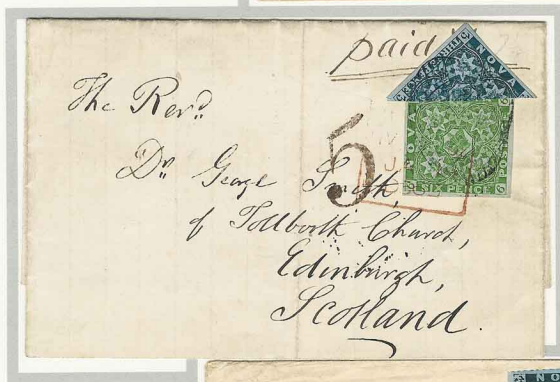 paid
NOVA
NOVA
SIX PENCE
POSTAGE
5
The Revd
Dr George Smith,
of Tolbooth Church,
Edinburgh,
Scotland.